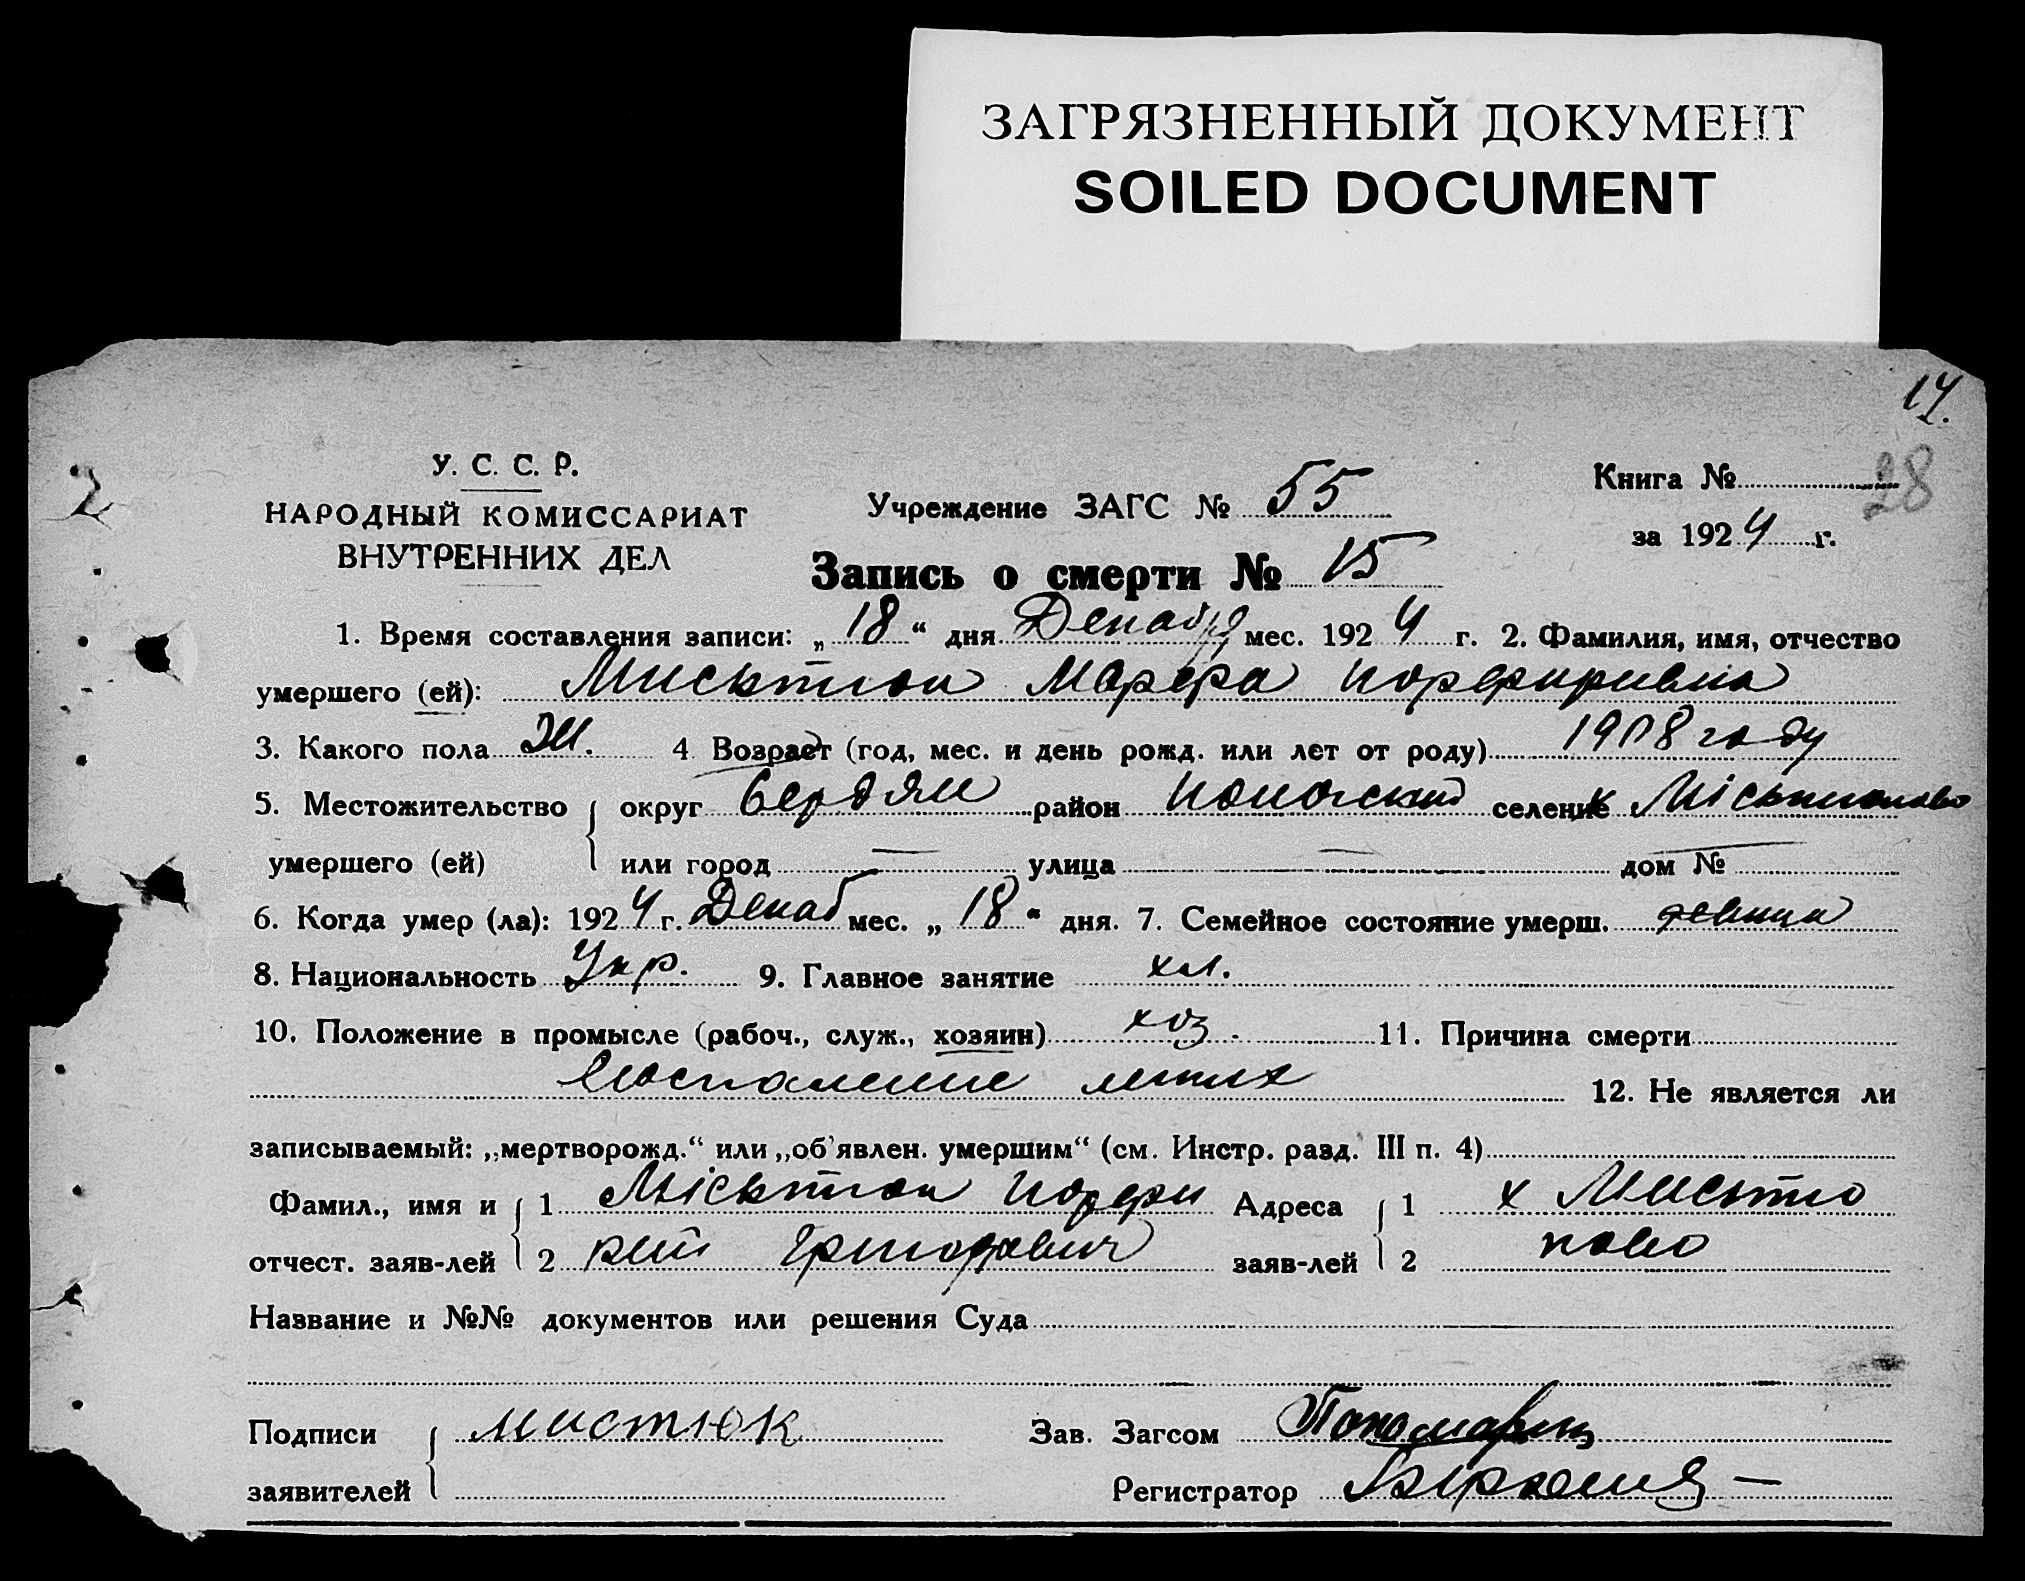 ЗАГРЯЗНЕННЫЙ ДОКУМЕНТ
SOILED DOCUMENT
14.
28
У. С. С. Р.
НАРОДНЫЙ КОМИССАРИАТ
ВНУТРЕННИХ ДЕЛ
Учреждение ЗАГС № 55
Книга №
за 1924 г.
Запись о смерти № 15
1. Время составления записи: „18“ дня Декабря мес. 1924 г. 2. Фамилия, имя, отчество
умершего (ей): Мисьтюк Марфа Порфировна
3. Какого пола Ж. 4 Возраст (год, мес. и день рожд. или лет от роду) 1908 году
5. Местожительство округ Бердян район селение х Місьтюково
умершего (ей) или город — улица — дом № —
6. Когда умер (ла): 1924 г. Декаб мес. „18“ дня. 7. Семейное состояние умерш. девица
8. Национальность Укр. 9. Главное занятие хл.
10. Положение в промысле (рабоч., служ., хозяин) хоз. 11. Причина смерти
Воспаление легких 12. Не является ли
записываемый: „мертворожд.“ или „об'явлен. умершим“ (см. Инстр. разд. III п. 4)
Фамил., имя и 1 Місьтюк Порфи Адреса 1 х Мисьтю
отчест. заяв-лей 2 рий Григорович заяв-лей 2 ково
Название и №№ документов или решения Суда
Подписи мистюк Зав. Загсом
заявителей Регистратор